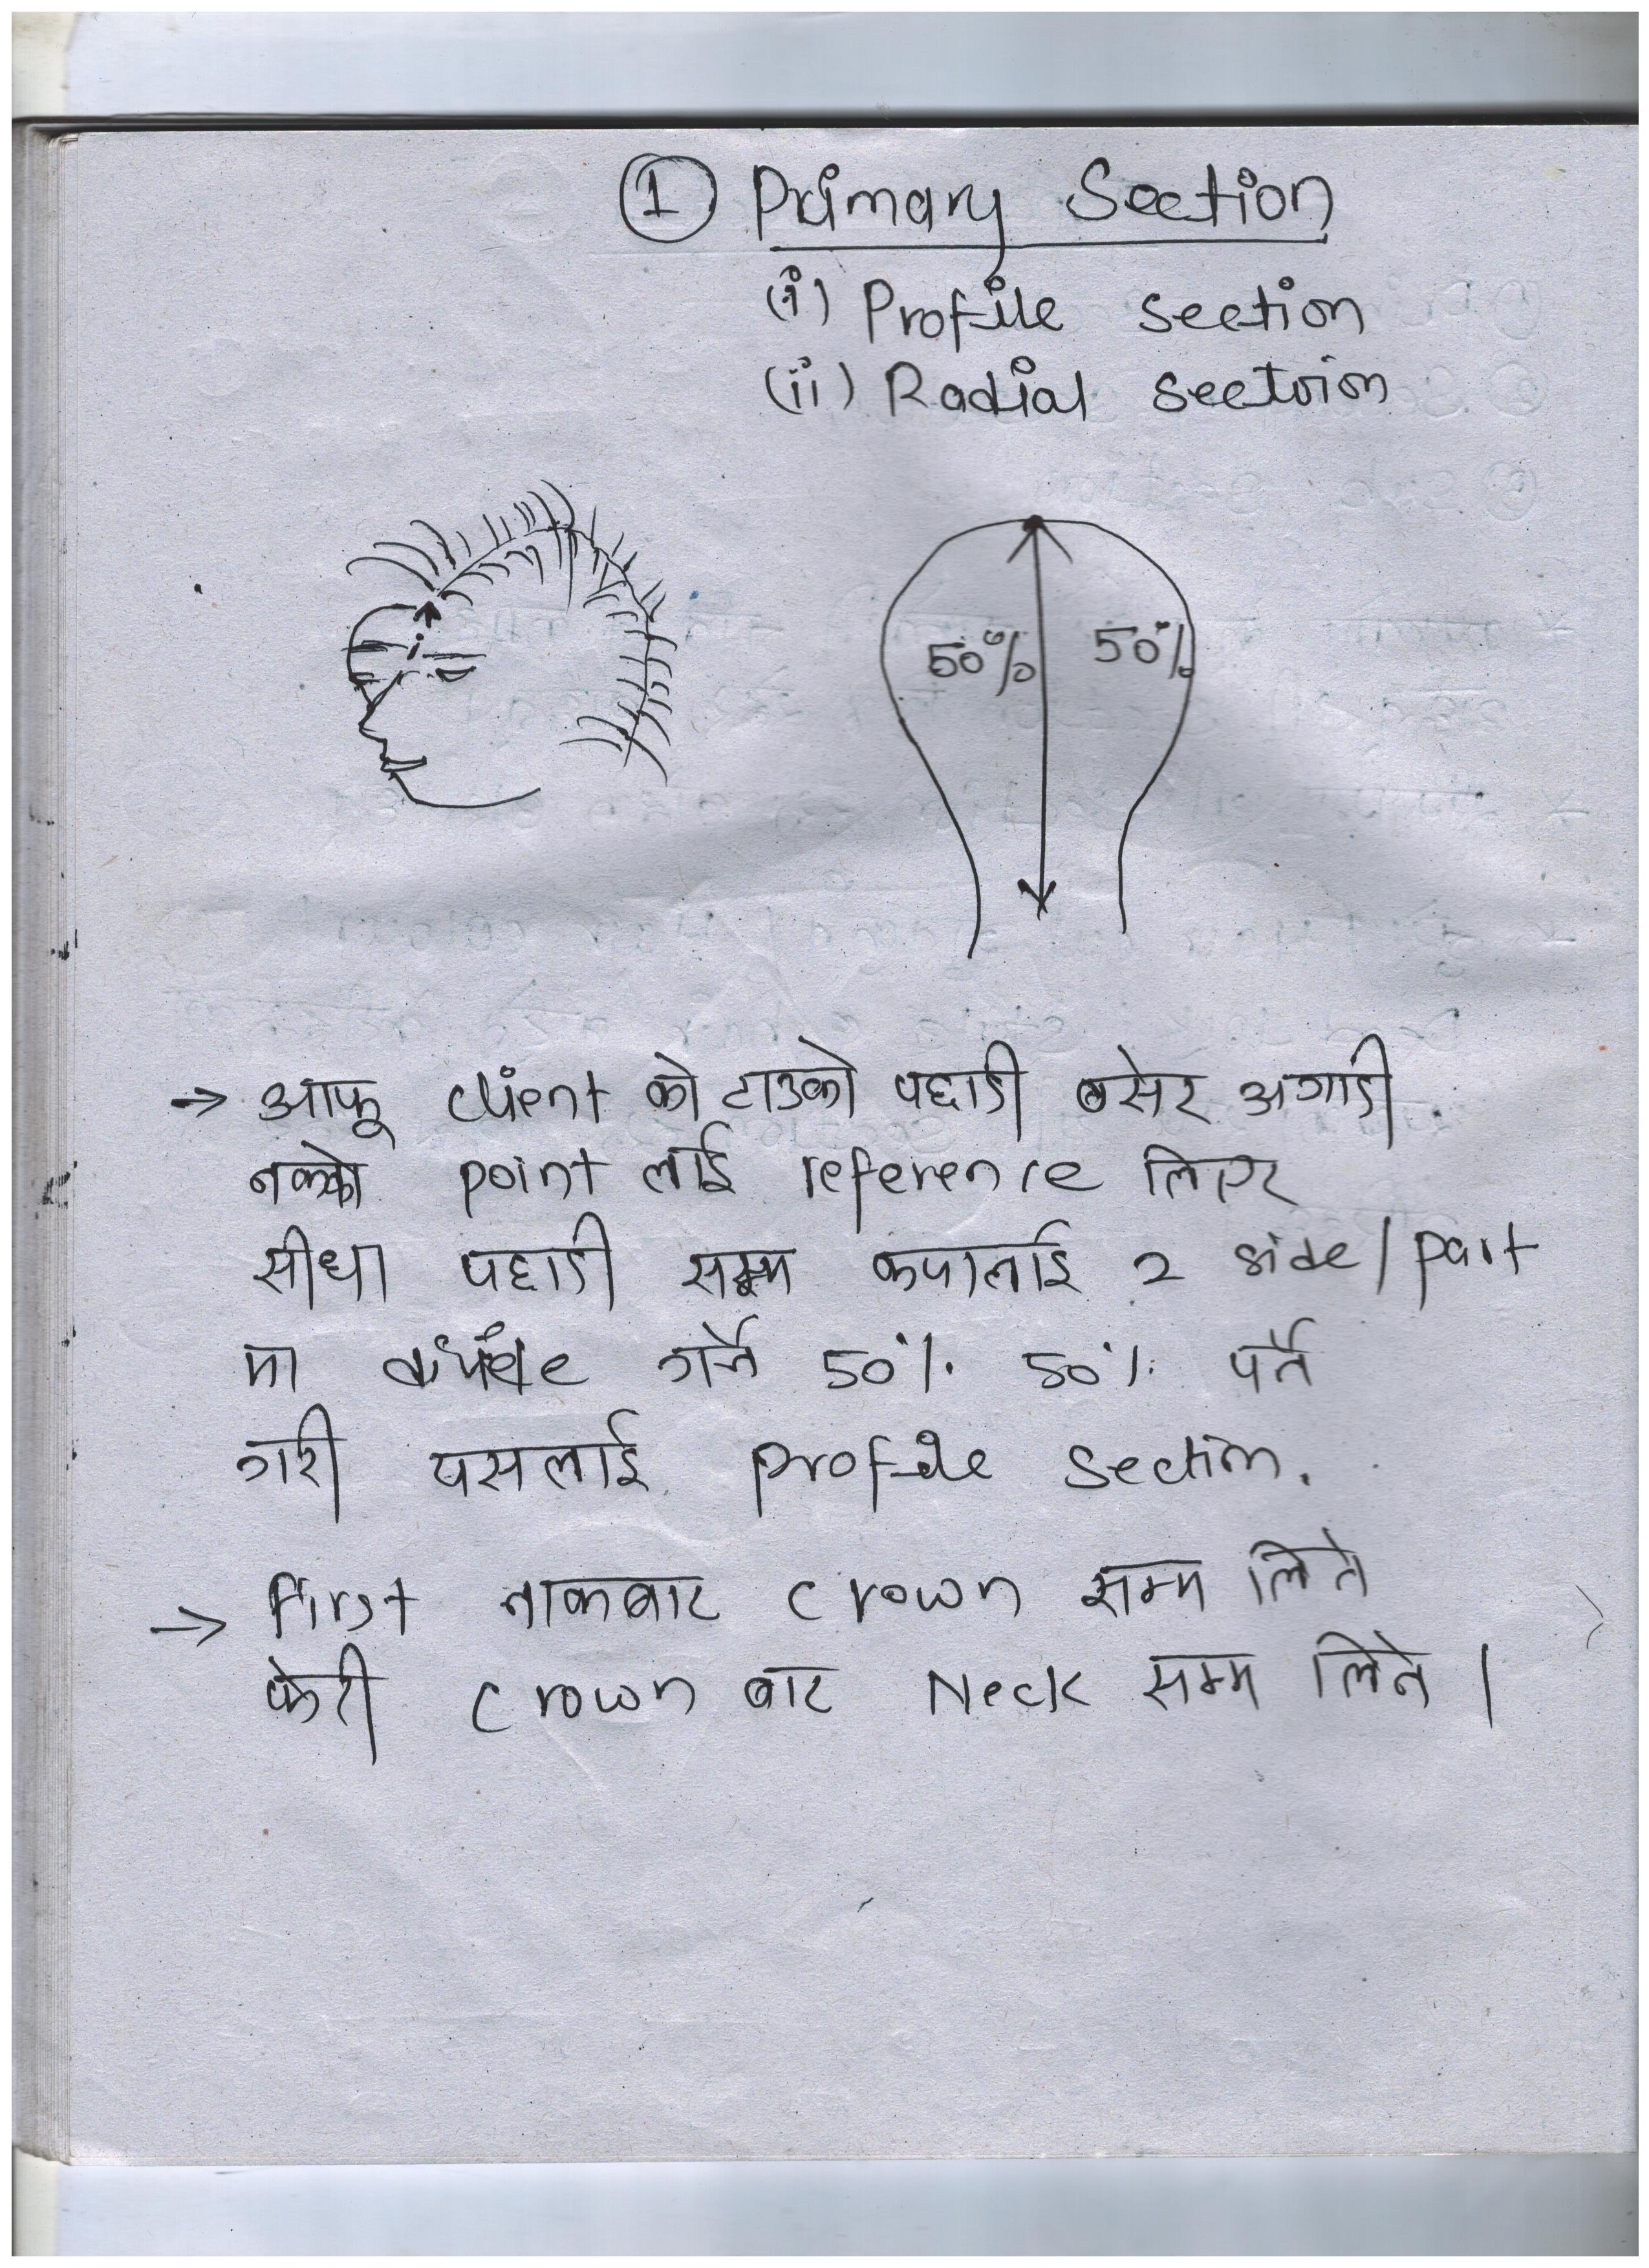 ① Primary Section
(i) Profile section
(ii) Radial section
50% 50%
→ आफू client को टाउको पछाडी बसेर अगाडी
नाकको point लाई reference लिएर
सीधा पछाडी सम्म कपाललाई 2 side/part
मा divide गर्ने 50% 50% पर्ने
गरी यसलाई profile section.
→ First नाकबाट crown सम्म लिने
फेरी crown बाट Neck सम्म लिने।